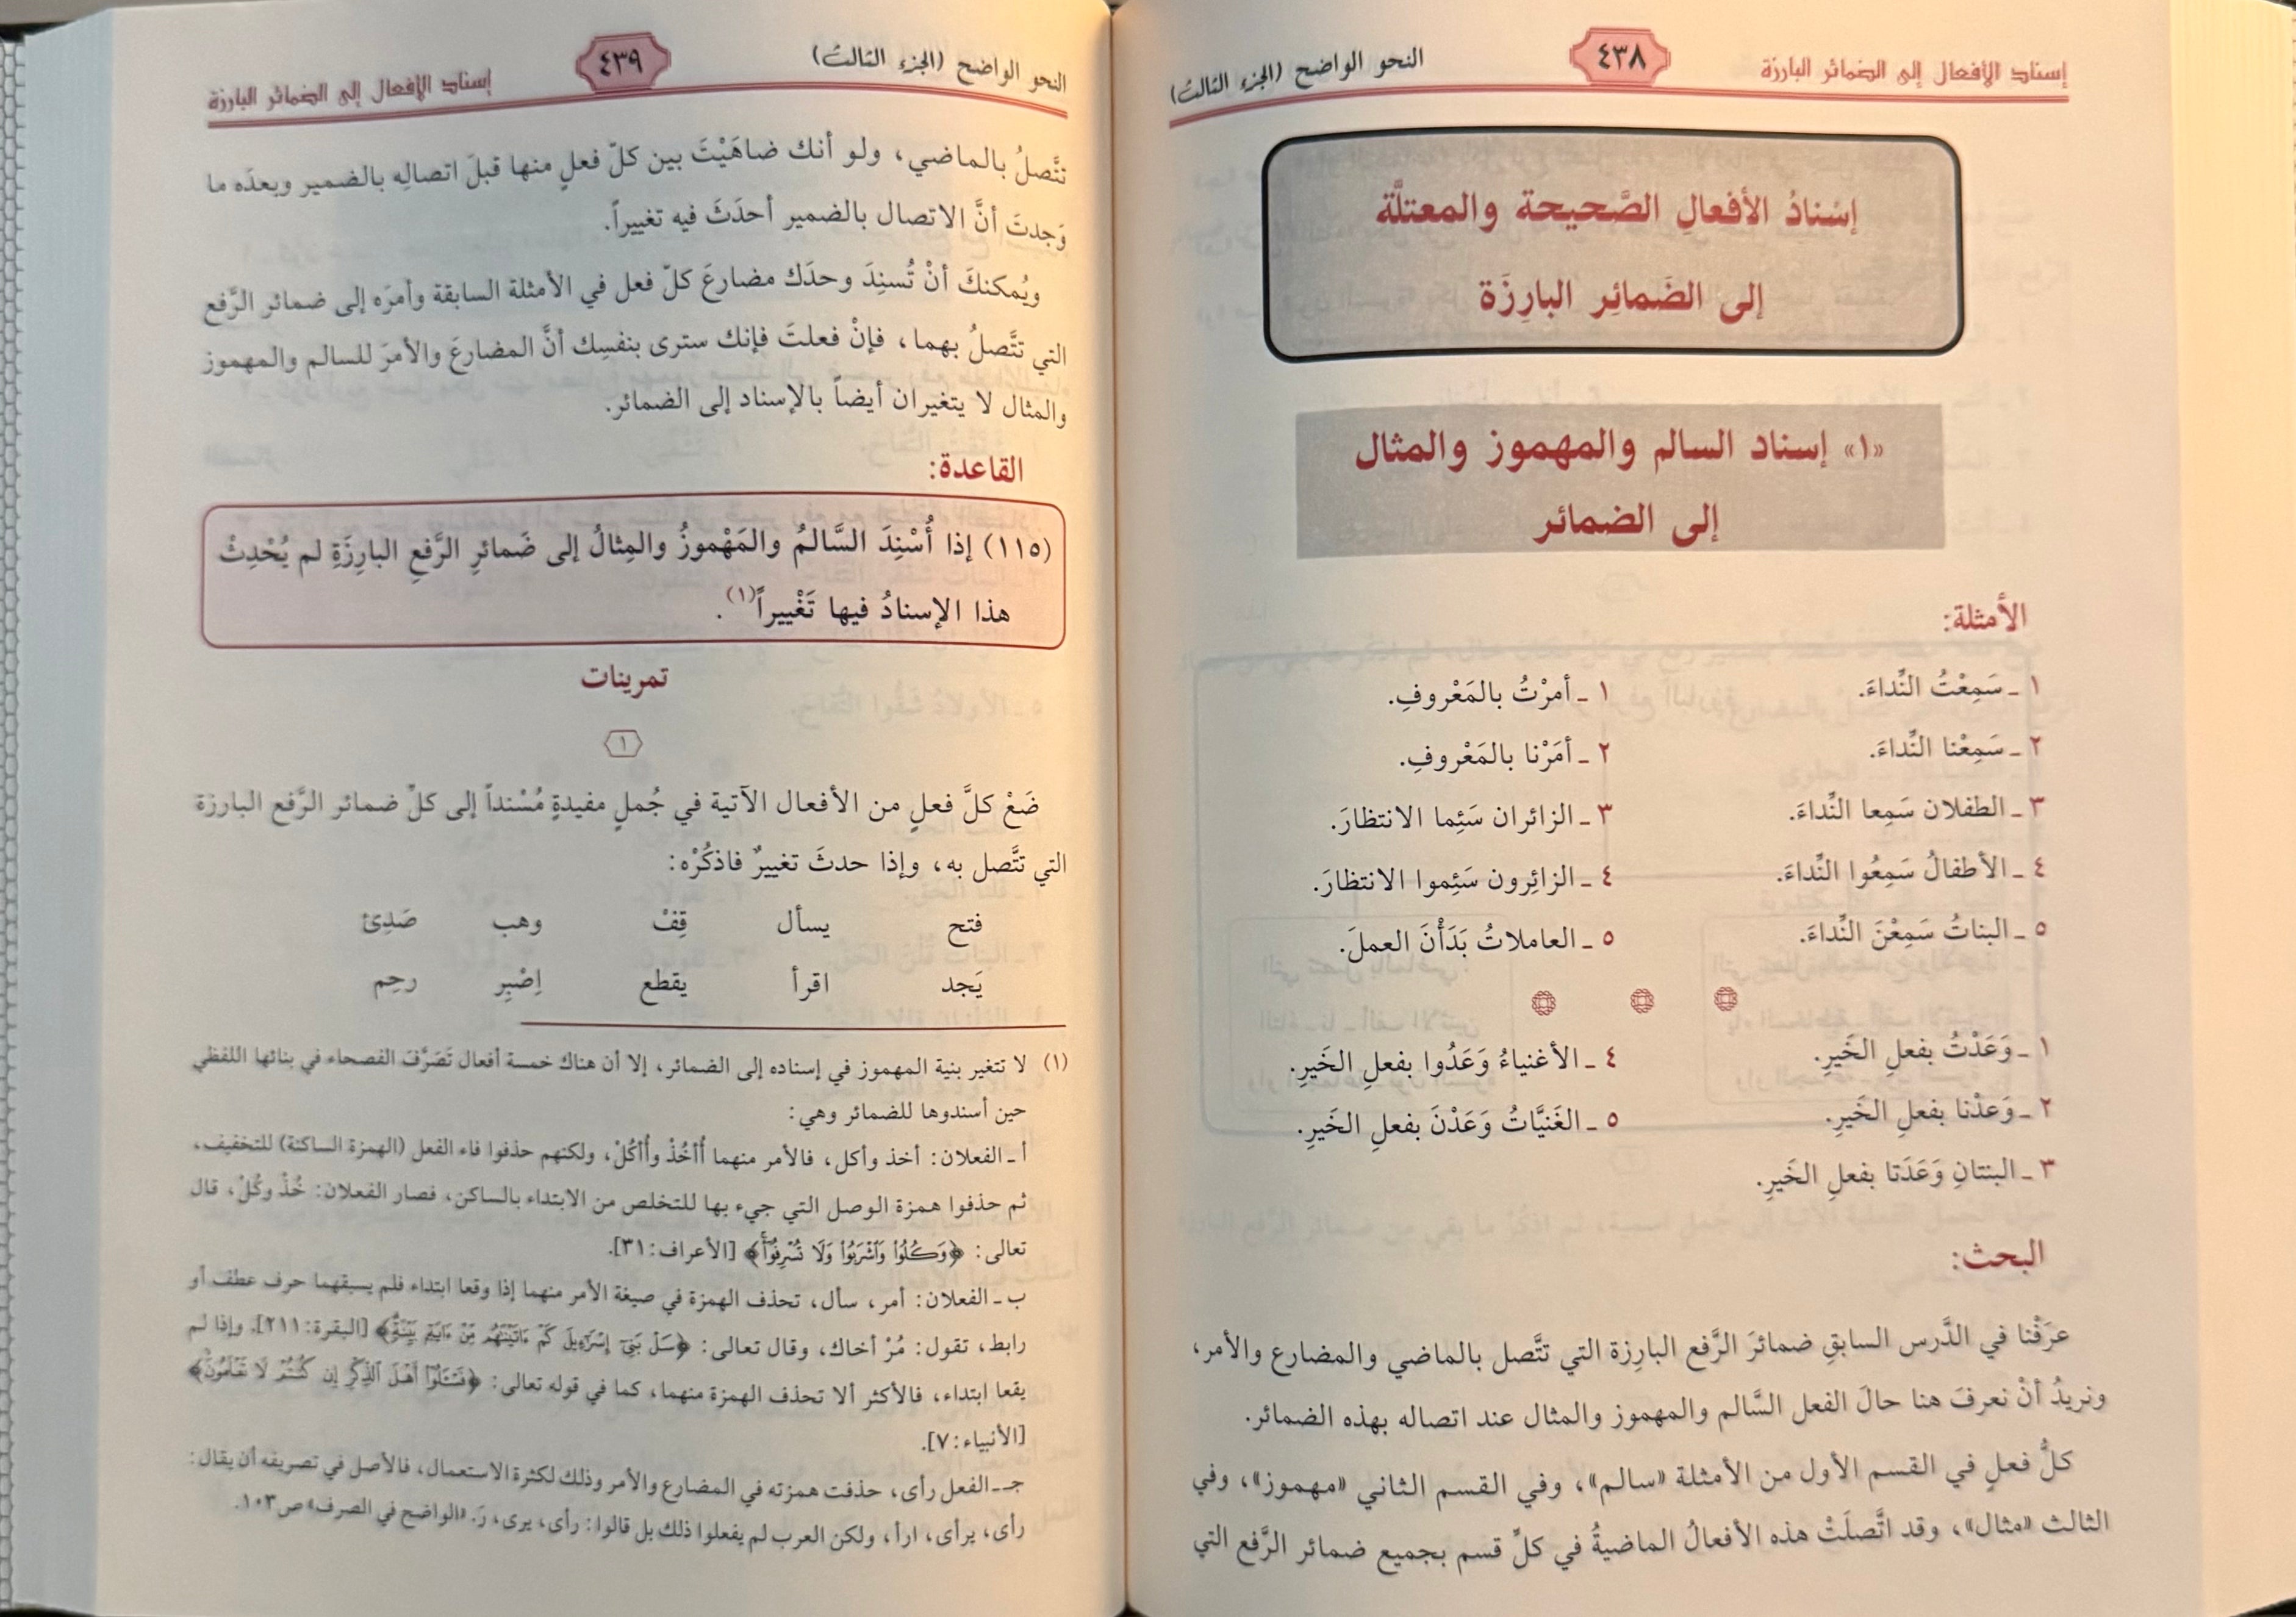 إسناد الأفعال إلى الضمائر البارزة
٤٣٨
النحو الواضح (الجزء الثالث)
إسْنادُ الأفعالِ الصَّحيحة والمعتلَّة
إلى الضَمائِر البارِزَة
«١» إسناد السالم والمهموز والمثال
إلى الضمائر
الأمثلة:
١ ـ سَمِعْتُ النِّداءَ.
١ ـ أمرْتُ بالمَعْروفِ.
٢ ـ سَمِعْنا النِّداءَ.
٢ ـ أمَرْنا بالمَعْروفِ.
٣ ـ الطفلان سَمِعا النِّداءَ.
٣ ـ الزائران سَئِما الانتظارَ.
٤ ـ الأطفالُ سَمِعُوا النِّداءَ.
٤ ـ الزائِرون سَئِموا الانتظارَ.
٥ ـ البناتُ سَمِعْنَ النِّداءَ.
٥ ـ العاملاتُ بَدَأْنَ العملَ.
١ ـ وَعَدْتُ بفعلِ الخَيرِ.
٤ ـ الأغنياءُ وَعَدُوا بفعلِ الخَيرِ.
٢ ـ وَعدْنا بفعلِ الخَيرِ.
٥ ـ الغَنيَّاتُ وَعَدْنَ بفعلِ الخَيرِ.
٣ ـ البنتانِ وَعَدَتا بفعلِ الخَيرِ.
البحث:
عرَفْنا في الدَّرس السابقِ ضمائرَ الرَّفع البارِزة التي تتَّصل بالماضي والمضارع والأمر،
ونريدُ أنْ نعرفَ هنا حالَ الفعل السَّالم والمهموز والمثال عند اتصاله بهذه الضمائر.
كلُّ فعلٍ في القسم الأول من الأمثلة «سالم»، وفي القسم الثاني «مهموز»، وفي
الثالث «مثال»، وقد اتَّصلَتْ هذه الأفعالُ الماضيةُ في كلِّ قسم بجميع ضمائر الرَّفع التي
النحو الواضح (الجزء الثالث)
٤٣٩
إسناد الأفعال إلى الضمائر البارزة
تتَّصلُ بالماضي، ولو أنك ضاهَيْتَ بين كلّ فعلٍ منها قبلَ اتصالِه بالضمير وبعدَه ما
وَجدتَ أنَّ الاتصال بالضمير أحدَثَ فيه تغييراً.
ويُمكنكَ أنْ تُسنِدَ وحدَك مضارعَ كلّ فعل في الأمثلة السابقة وأمرَه إلى ضمائر الرَّفع
التي تتَّصلُ بهما، فإنْ فعلتَ فإنك سترى بنفسِك أنَّ المضارعَ والأمرَ للسالم والمهموز
والمثال لا يتغيران أيضاً بالإسناد إلى الضمائر.
القاعدة:
(١١٥) إذا أُسْنِدَ السَّالمُ والمَهْموزُ والمِثالُ إلى ضَمائرِ الرَّفعِ البارِزَةِ لم يُحْدِثْ
هذا الإسنادُ فيها تَغْييراً(١).
تمرينات
١
ضَعْ كلَّ فعلٍ من الأفعال الآتية في جُملٍ مفيدةٍ مُسْنداً إلى كلِّ ضمائر الرَّفع البارزة
التي تتَّصل به، وإذا حدثَ تغييرٌ فاذكُرْه:
فتح يسأل قِفْ وهب صَدِئ
يَجد اقرأ يقطع اِصْبِر رحِم
(١) لا تتغير بنية المهموز في إسناده إلى الضمائر، إلا أن هناك خمسة أفعال تَصَرَّفَ الفصحاء في بنائها اللفظي
حين أسندوها للضمائر وهي:
أ ـ الفعلان: أخذ وأكل، فالأمر منهما أُأْخُذْ وأُأْكُلْ، ولكنهم حذفوا فاء الفعل (الهمزة الساكنة) للتخفيف،
ثم حذفوا همزة الوصل التي جيء بها للتخلص من الابتداء بالساكن، فصار الفعلان: خُذْ وكُلْ، قال
تعالى: ﴿وَكُلُوا۟ وَٱشْرَبُوا۟ وَلَا تُسْرِفُوٓا۟﴾ [الأعراف: ٣١].
ب ـ الفعلان: أمر، سأل، تحذف الهمزة في صيغة الأمر منهما إذا وقعا ابتداء فلم يسبقهما حرف عطف أو
رابط، تقول: مُرْ أخاك، وقال تعالى: ﴿سَلْ بَنِىٓ إِسْرَٰٓءِيلَ كَمْ ءَاتَيْنَٰهُم مِّنْ ءَايَةٍۭ بَيِّنَةٍ﴾ [البقرة: ٢١١]. وإذا لم
يقعا ابتداء، فالأكثر ألا تحذف الهمزة منهما، كما في قوله تعالى: ﴿فَسْـَٔلُوٓا۟ أَهْلَ ٱلذِّكْرِ إِن كُنتُمْ لَا تَعْلَمُونَ﴾
[الأنبياء: ٧].
جـ ـ الفعل رأى، حذفت همزته في المضارع والأمر وذلك لكثرة الاستعمال، فالأصل في تصريفه أن يقال:
رأى، يرأى، ارأ، ولكن العرب لم يفعلوا ذلك بل قالوا: رأى، يرى، رَ. «الواضح في الصرف» ص١٠٣.